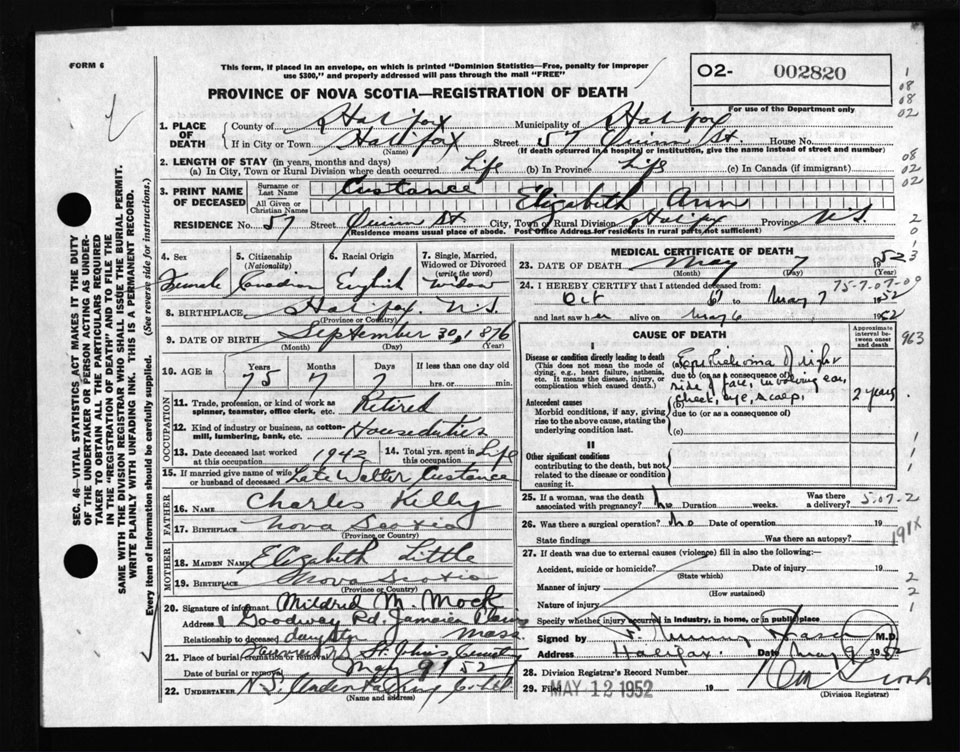 FORM 6
This form, if placed in an envelope, on which is printed "Dominion Statistics—Free, penalty for improper
use $300," and properly addressed will pass through the mail "FREE"
O2- 002820
For use of the Department only
PROVINCE OF NOVA SCOTIA—REGISTRATION OF DEATH
1. PLACE OF DEATH County of Halifax Municipality of Halifax
If in City or Town Halifax Street 57 Quinn St. House No.
(Name) (If death occurred in a hospital or institution, give the name instead of street and number)
2. LENGTH OF STAY (in years, months and days)
(a) In City, Town or Rural Division where death occurred Life (b) In Province Life (c) In Canada (if immigrant)
3. PRINT NAME OF DECEASED Surname or Last Name Custance
All Given or Christian Names Elizabeth Ann
RESIDENCE No. 57 Quinn St City, Town or Rural Division Halifax Province N.S.
(Residence means usual place of abode. Post Office Address for residents in rural parts not sufficient)
4. Sex 5. Citizenship (Nationality) 6. Racial Origin 7. Single, Married, Widowed or Divorced (write the word)
Female Canadian English Widow
8. BIRTHPLACE Halifax. N.S.
(Province or Country)
9. DATE OF BIRTH September 30, 1876
(Month) (Day) (Year)
10. AGE in Years Months Days If less than one day
75 7 7 hrs. or min.
OCCUPATION
11. Trade, profession, or kind of work as spinner, teamster, office clerk, etc. Retired
12. Kind of industry or business, as cotton-mill, lumbering, bank, etc. Houseduties
13. Date deceased last worked at this occupation 1942 14. Total yrs. spent in this occupation Life
15. If married give name of wife or husband of deceased Late Walter Custance
FATHER
16. Name Charles Kelly
17. Birthplace Nova Scotia
(Province or Country)
MOTHER
18. Maiden Name Elizabeth Little
19. Birthplace Nova Scotia
(Province or Country)
20. Signature of informant Mildred M. Mock
Address 1 Goodway Rd. Jamaica Plains
Relationship to deceased daughter Mass
21. Place of burial, cremation or removal Fairview N.S. St. John's Cemetery
Date of burial or removal May 9 1952
22. UNDERTAKER N.S. Undertaking Co. Ltd
(Name and address)
MEDICAL CERTIFICATE OF DEATH
23. DATE OF DEATH May 7 1952
(Month) (Day) (Year)
75-7-07-00
24. I HEREBY CERTIFY that I attended deceased from:
Oct to May 7 1952
and last saw her alive on May 6 1952
CAUSE OF DEATH Approximate interval between onset and death
I
Disease or condition directly leading to death
(This does not mean the mode of dying, e.g., heart failure, asthenia, etc. It means the disease, injury, or complication which caused death.)
(a) of right
due to (or as a consequence of)
side of face, involving ear,
Antecedent causes
Morbid conditions, if any, giving rise to the above cause, stating the underlying condition last.
(b) cheek, eye, scalp. 2 years
due to (or as a consequence of)
(c)
II
Other significant conditions
contributing to the death, but not related to the disease or condition causing it.
25. If a woman, was the death associated with pregnancy? No Duration weeks. Was there a delivery?
5-07-2
26. Was there a surgical operation? No Date of operation 19
State findings Was there an autopsy?
191X
27. If death was due to external causes (violence) fill in also the following:—
Accident, suicide or homicide? Date of injury 19
(State which)
Manner of injury
(How sustained)
Nature of injury
Specify whether injury occurred in industry, in home, or in public place
Signed by M.D.
Address Halifax. Date May 9 1952
28. Division Registrar's Record Number
29. Filed MAY 12 1952 19
(Division Registrar)
SEC. 46—VITAL STATISTICS ACT MAKES IT THE DUTY
OF THE UNDERTAKER OR PERSON ACTING AS UNDER-
TAKER TO OBTAIN ALL THE PARTICULARS REQUIRED
IN THE "REGISTRATION OF DEATH" AND TO FILE THE
SAME WITH THE DIVISION REGISTRAR WHO SHALL ISSUE THE BURIAL PERMIT.
WRITE PLAINLY WITH UNFADING INK. THIS IS A PERMANENT RECORD.
Every item of information should be carefully supplied. (See reverse side for instructions.)
1
08
08
02
08
02
02
2
0
3
963
1
1
2
2
1